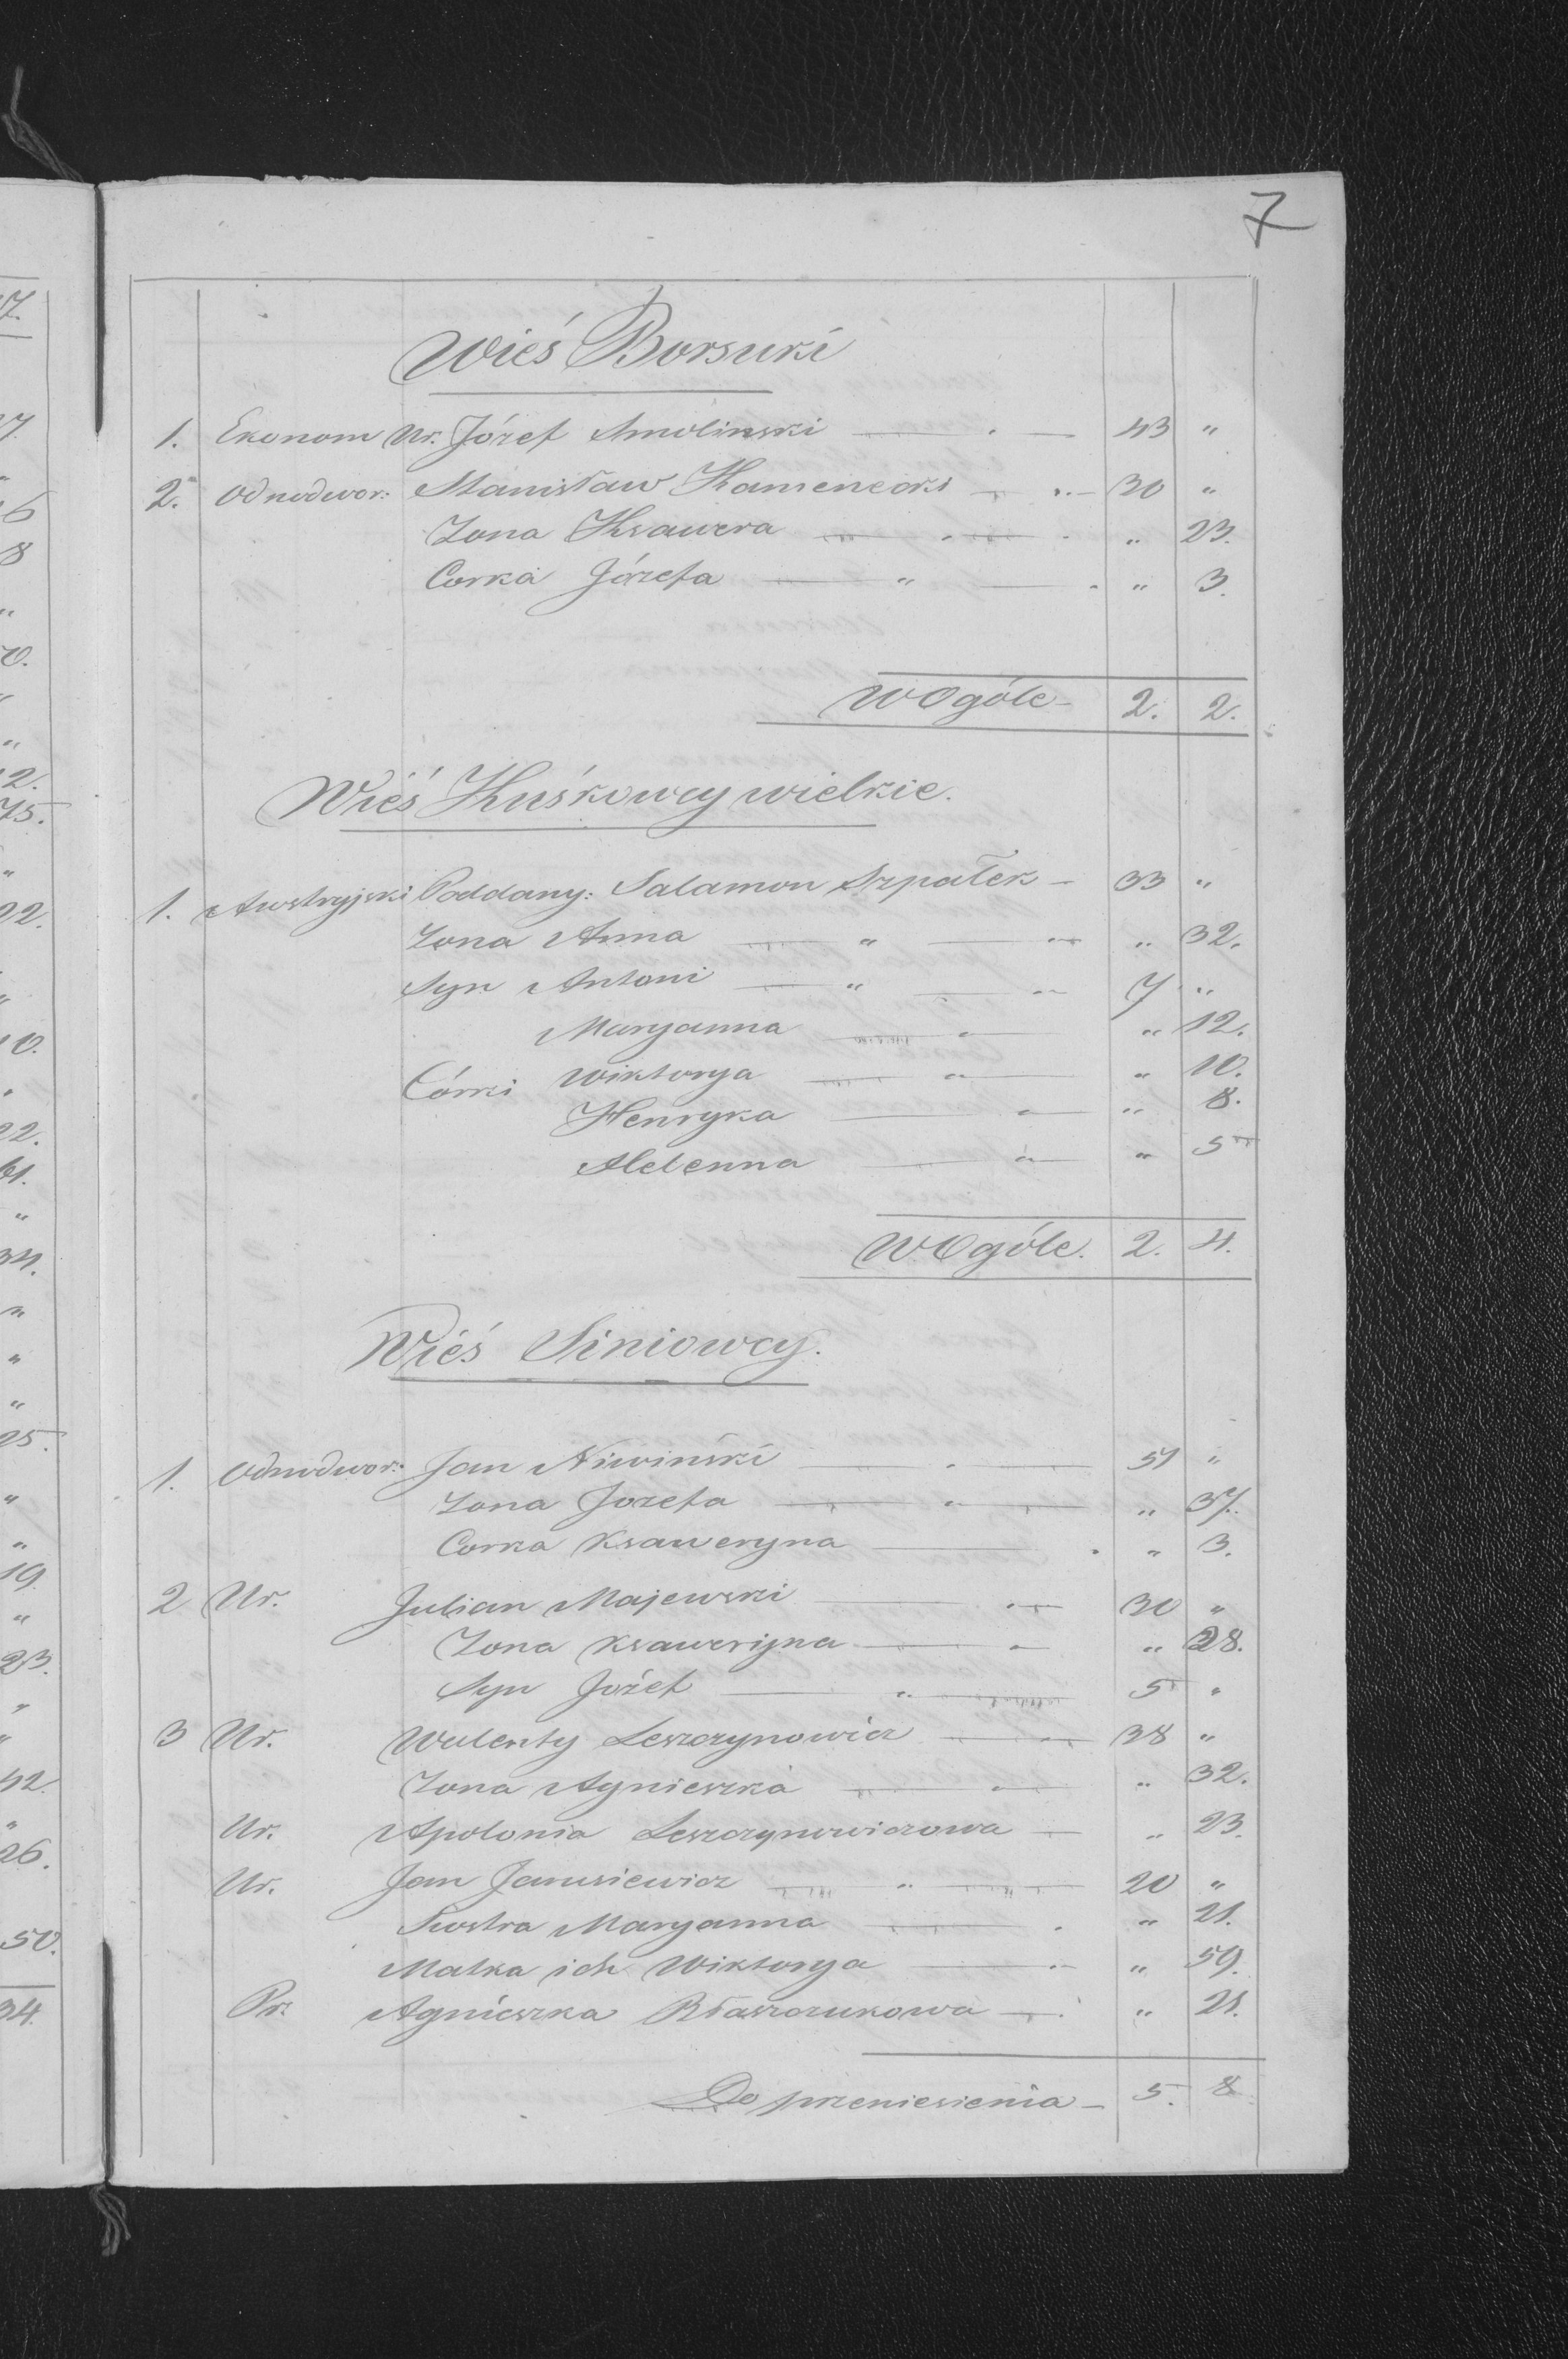 7
Wieś Borsuki
1. Ekonom Ur. Józef Smolinski 43 "
2. Odnodwor: Stanisław Kamenecki 30 "
Zona Ksawera " 23.
Corka Józefa " 3.
W Ogóle 2. 2.
Wieś Kuśkowcy wielkie.
1. Awstryjski Poddany: Salamon Szpałek 33 "
Zona Anna " 32.
Syn Antoni 7 "
Maryanna " 12.
Córki Wiktorya " 10.
Henryka " 8.
Helenna " 5
W Ogóle. 2. 4.
Wieś Siniowcy.
1. Odnodwor: Jan Niwinski 51 "
Zona Jozefa " 37.
Corka Ksaweryna " 3.
2 Ur. Julian Majewski 30 "
Zona Ksaweryna " 28.
Syn Józef 5 "
3 Ur. Walenty Leszczynowicz 38 "
Zona Agnieszka " 32.
Ur. Apolonia Leszczynowiczowa " 23.
Ur. Jan Janusiewicz 20 "
Siostra Maryanna " 21.
Matka ich Wiktorya " 59.
Pr: Agnieszka Błaszczukowa " 21.
Do przeniesienia 5. 8